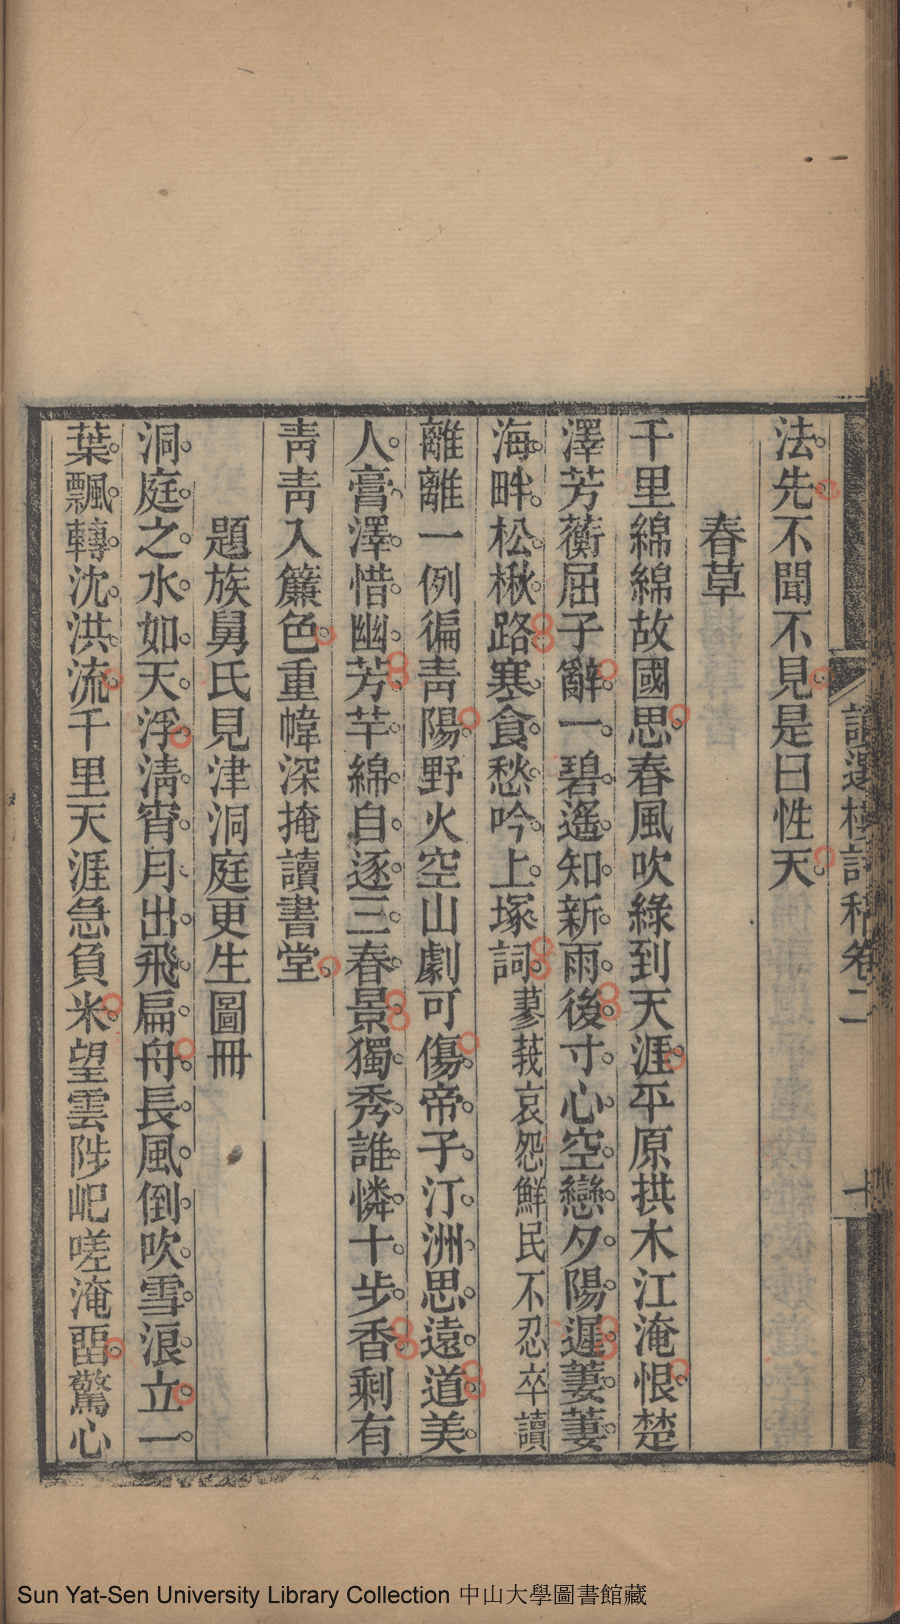 讀選樓詩稿卷二
十
法先不聞不見是曰性天
春草
千里綿綿故國思春風吹綠到天涯平原拱木江淹恨楚
澤芳蘅屈子辭一碧遙知新雨後寸心空戀夕陽遲萋萋
海畔松楸路寒食愁吟上塚詞蓼莪哀怨鮮民不忍卒讀
離離一例徧青陽野火空山劇可傷帝子汀洲思遠道美
人膏澤惜幽芳芊綿自逐三春景獨秀誰憐十步香剩有
青青入簾色重幃深掩讀書堂
題族舅氏見津洞庭更生圖冊
洞庭之水如天浮淸宵月出飛扁舟長風倒吹雪浪立一
葉飄轉沈洪流千里天涯急負米望雲陟屺嗟淹畱驚心
Sun Yat-Sen University Library Collection 中山大學圖書館藏